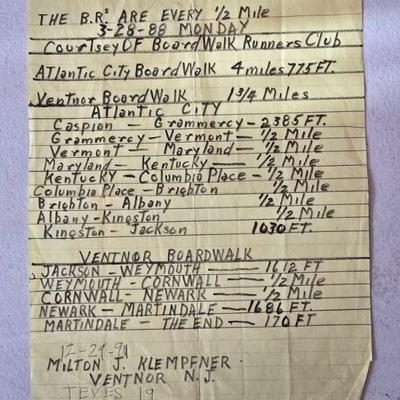 THE B.Rs ARE EVERY 1/2 Mile
3-28-88 MONDAY
Courtsey OF BoardWalk Runners Club
Atlantic City BoardWalk 4 miles 775 FT.
Ventnor BoardWalk 1 3/4 Miles
Atlantic City
Caspian — Grammercy - 2385 FT.
Grammercy - Vermont — 1/2 Mile
Vermont — Maryland — 1/2 Mile
Maryland — Kentucky — 1/2 Mile
Kentucky - Columbia Place - 1/2 Mile
Columbia Place - Brighton 1/2 Mile
Brighton - Albany 1/2 Mile
Albany - Kingston 1/2 Mile
Kingston - Jackson 1030 FT.
VENTNOR BOARDWALK
JACKSON - WEYMOUTH — 1612 FT
WEYMOUTH - CORNWALL — 1/2 Mile
CORNWALL - NEWARK — 1/2 Mile
NEWARK — MARTINDALE — 1686 FT.
MARTINDALE — THE END — 170 FT
12-29-91
MILTON J. KLEMPFNER
VENTNOR N.J.